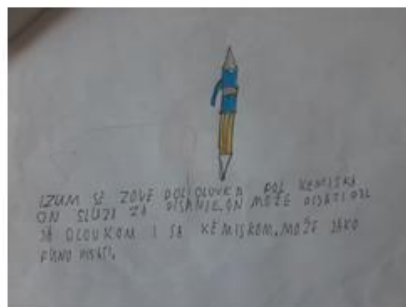 IZUM SE ZOVE POLOLOVKA POL KEMISKA.
ON SLUZI ZA PISANJE. ON MOŽE PISATI
SA OLOUKOM I SA KEMISKOM. MOŽE JAKO
PUNO PISATI.